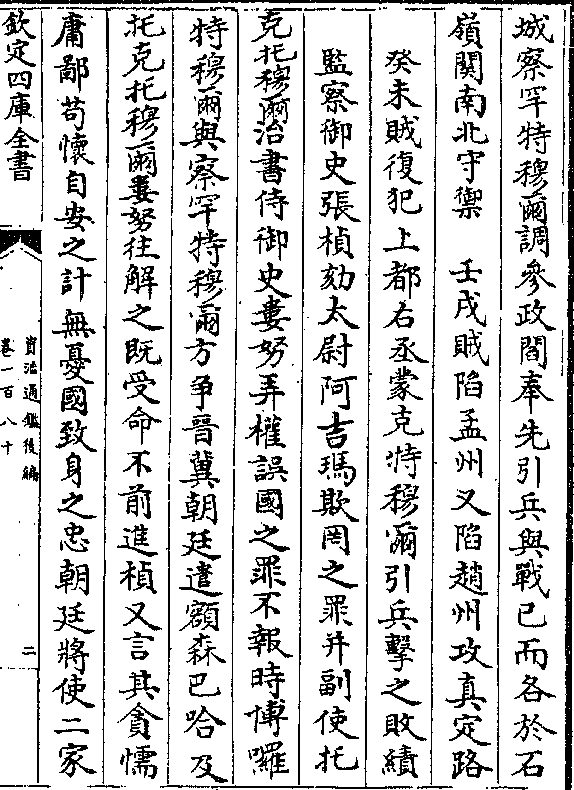 城察罕特穆爾調參政閻奉先引兵與戰已而各於石
嶺關南北守禦　壬戌賊陷孟州又陷趙州攻真定路
癸未賊復犯上都右丞蒙克特穆爾引兵擊之敗績
監察御史張楨劾太尉阿吉瑪欺罔之罪并副使托
克托穆爾治書侍御史婁努弄權誤國之罪不報時博囉
特穆爾與察罕特穆爾方争晉冀朝廷遣額森巴哈及
托克托穆爾婁努往解之既受命不前進楨又言其貪懦
庸鄙苟懷自安之計無憂國致身之忠朝廷將使二家
欽定四庫全書
資治通鑑後編
卷一百八十
二